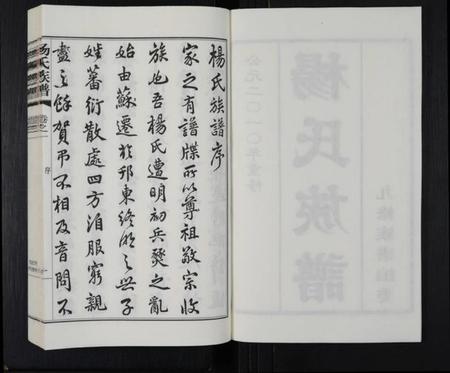 楊氏族譜序
家之有譜牒所以尊祖敬宗收
族也吾楊氏遭明初兵燹之亂
始由蘇遷於邗東終鄉之無子
姓蕃衍散處四方洎服窮親
盡之餘賀弔不相及音問不
楊氏族譜
卷之
序
公元二〇一〇年重修
楊氏族譜